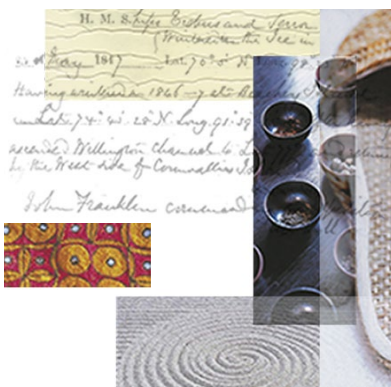 H. M. Ships Erebus and Terror
Wintered in the Ice in
of May 1847 Lat. 70° 5' N Long. 98°
Having wintered in 1846–7 at Beechey Island
in Lat 74° 28 N. Long. 91° 39
ascended Wellington Channel to
by the West side of Cornwallis
John Franklin